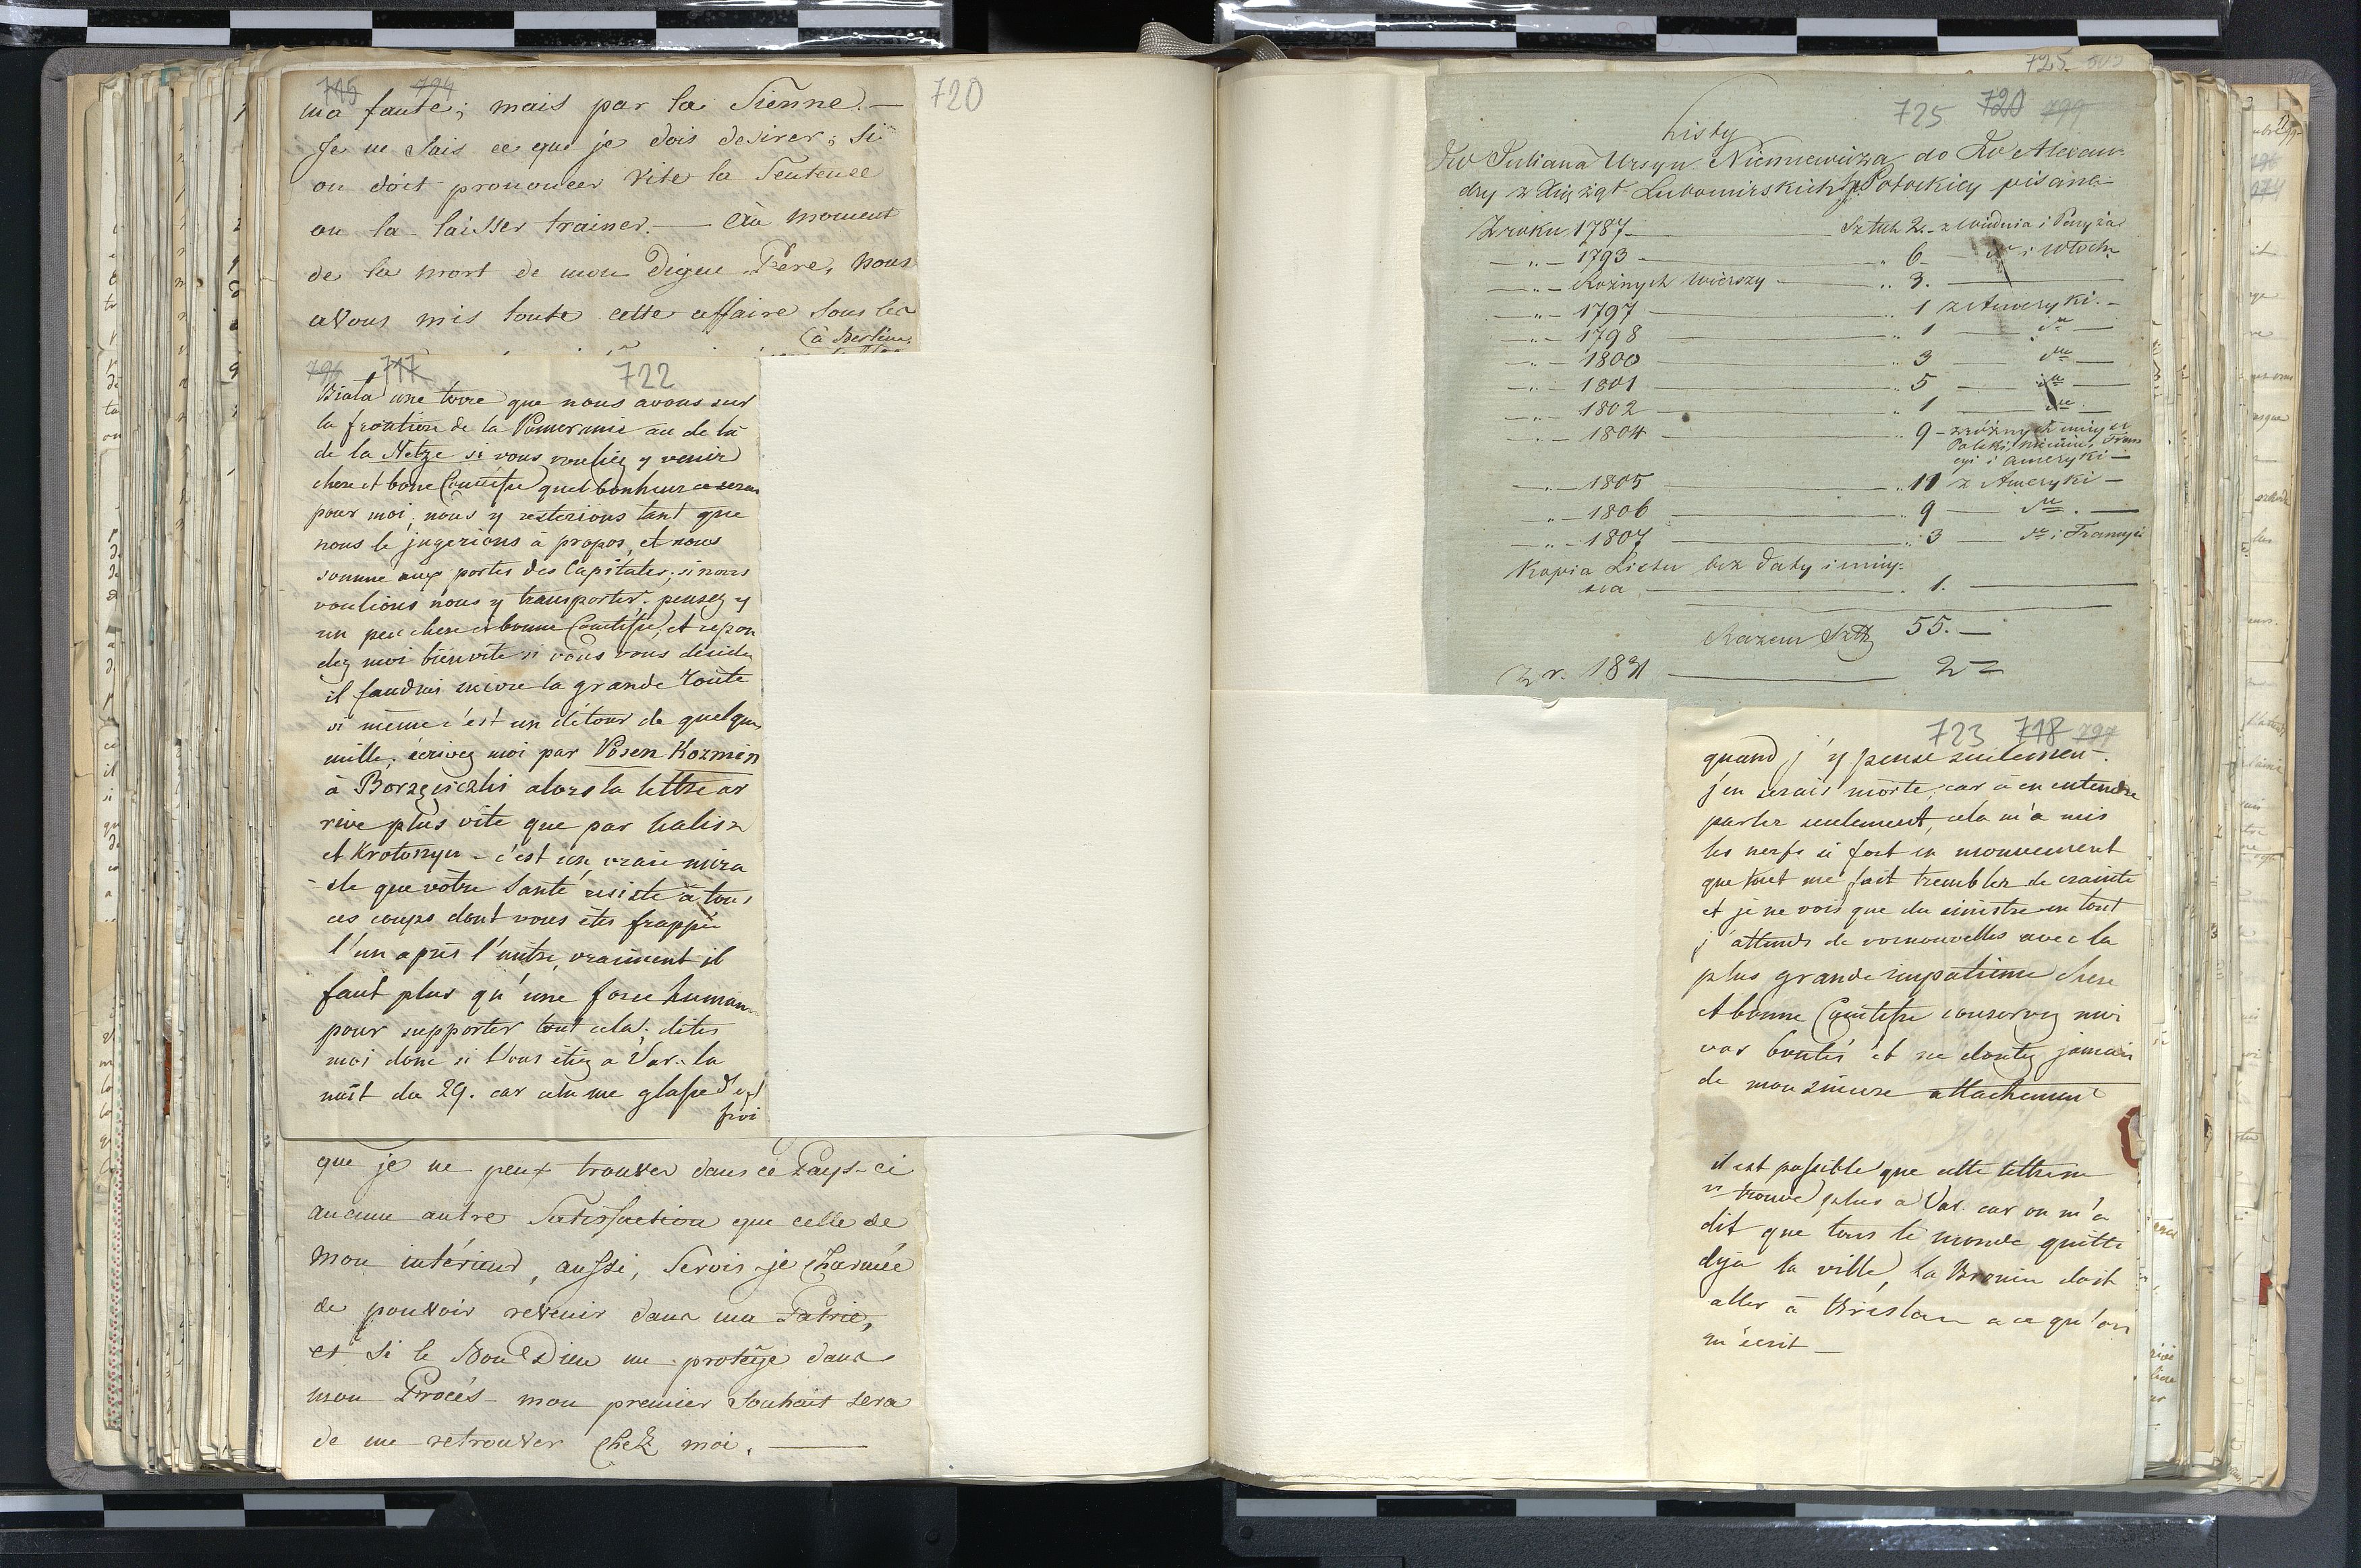 715 794
720
ma faute; mais par la Sienne. —
Je ne Sais ce que je dois desirer; Si
on doit prononcer Vite la Sentence
ou la laisser trainer. — Au moment
de la mort de mon digne Père, nous
avons mis toute cette affaire sous les
(à Berlin
796 717 722
Biała une terre que nous avons sur
la frontiere de la Pomeranie au de là
de la Netze si vous vouliez y venir
chere et bone Comtesse quel bonheur ce serai
pour moi, nous y resterions tant que
nous le jugerions à propos, et nous
somme aux portes des Capitales, si nous
voulions nous y transporter. pensez y
un peu chere et bonne Comtesse, et repon
dez moi bien vite si vous vous decidez
il faudrai suivre la grande route
si même c'est un détour de quelques
mille, écrivez moi par Posen Kozmin
à Borzęciczki alors la lettre ar
rive plus vite que par Kalisz
et Krotoszyn - c'est un vraie mira
cle que votre Santé resiste à tous
ces coups dont vous êtes frappée
l'un après l'autre, vraiment il
faut plus qu'une force humain
pour supporter tout cela. dites
moi donc si Vous étiez a Var. la
nuit du 29. car cela me glasse d'ef
froi
que je ne peux trouver dans ce Pays-ci
aucune autre Satisfaction que celle de
mon intérieur, aussi, Serois-je Charmée
de pouvoir revenir dans ma Patrie,
et Si le Bon Dieu me protège dans
mon Procés - mon premier Souhait sera
de me retrouver Chez moi. —
725
725 720 799
Listy
JW Juliana Ursyn Niemcewicza do JW Alexan-
dry z Xiążąt Lubomirskich Potockiey pisane
Z roku 1787 — Sztuk 2. - z Wiednia i Paryża
— „ — 1793 — „ 6 — do i Włoch
— „ — Rożnych wierszy — „ 3. —
— „ — 1797 — „ 1 z Ameryki. —
— „ — 1798 — „ 1 — do —
— „ — 1800 — „ 3 — do —
— „ — 1801 — „ 5 — do —
— „ — 1802 — „ 1 — do —
— „ — 1804 — „ 9 - z rożnych mieysc
Polski, Niemiec, Fran
cyi i Ameryki —
— „ — 1805 — „ 11 z Ameryki —
— „ — 1806 — „ 9 — do. —
— „ — 1807 — „ 3 — do i Francyi
Kopia Listu bez daty i miey-
sca — 1. —
Razem Szt 55. —
z r. 1831 — 2 —
723 718 797
quand j'y pense seulement.
j'en serais morte, car à en entendre
parler seulement, cela m'a mis
les nerfs si fort en mouvement
que tout me fait trembler de crainte
et je ne vois que du sinistre en tout
j'attends de vos nouvelles avec la
plus grande impatience chere
et bonne Comtesse conservez moi
vos bontés et ne doutez jamais
de mon sincere attachement
il est possible que cette lettre ne
vs trouve plus a Var. car on m'a
dit que tous le monde quitte
deja la ville, la Bronin doit
aller à Breslau a ce qu'on
m'ecrit —